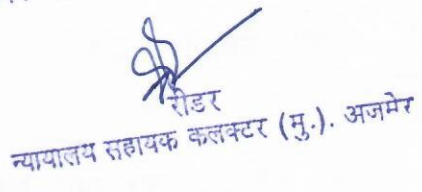 रीडर
न्यायालय सहायक कलक्टर (मु.). अजमेर